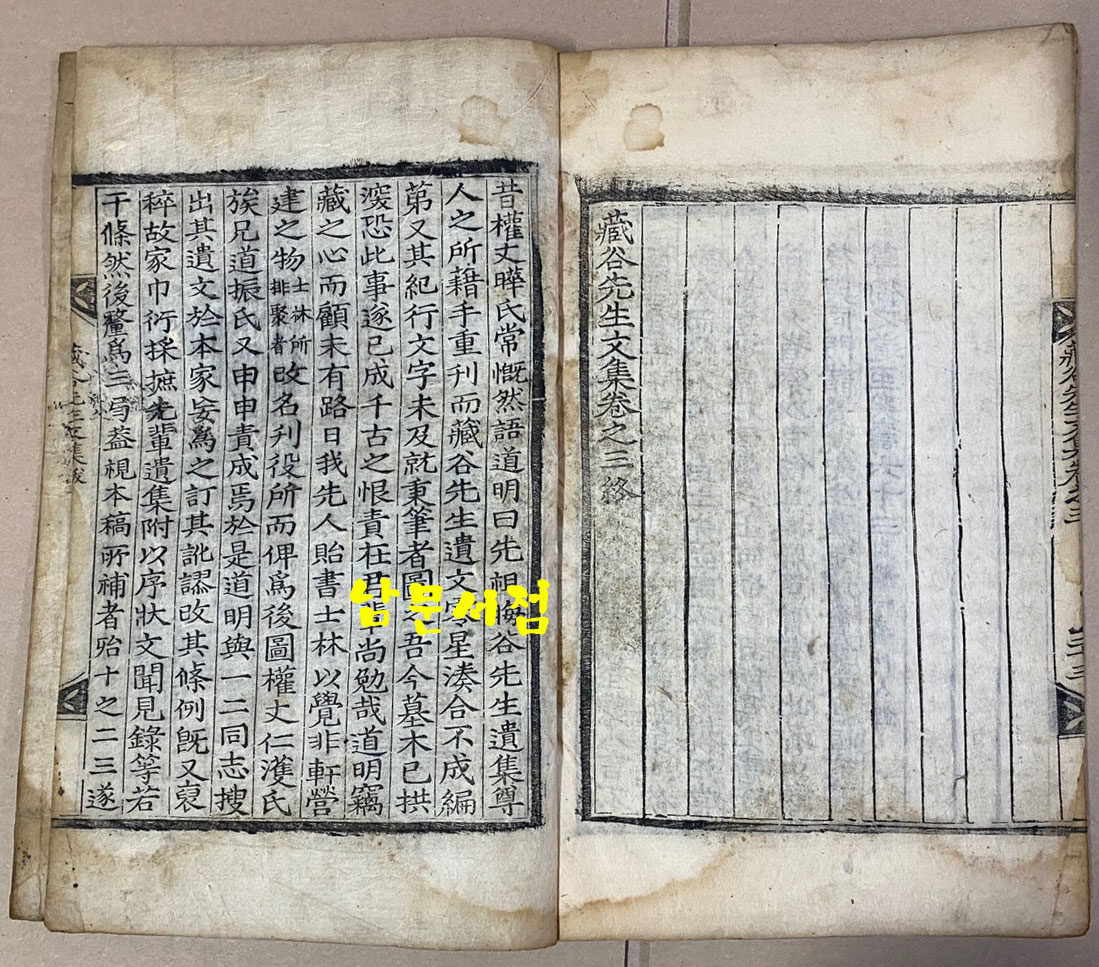 藏谷先生文集卷之三
藏谷先生文集卷之三終
昔權丈曄氏常慨然語道明曰先祖梅谷先生遺集尊
人之所藉手重刊而藏谷先生遺文零星湊合不成編
第又其紀行文字未及就秉筆者圖之吾今墓木已拱
深恐此事遂已成千古之恨責在君輩尚勉哉道明竊
藏之心而顧未有路日我先人貽書士林以覺非軒營
建之物士林所排聚者改名刊役所而俾爲後圖權丈仁濩氏
族兄道振氏又申申責成焉於是道明與一二同志搜
出其遺文於本家妄爲之訂其訛謬改其條例旣又裒
稡故家巾衍採摭先輩遺集附以序狀文聞見錄等若
干條然後釐爲三蓋視本稿所補者殆十之二三遂
藏谷先生文集跋
남문서점